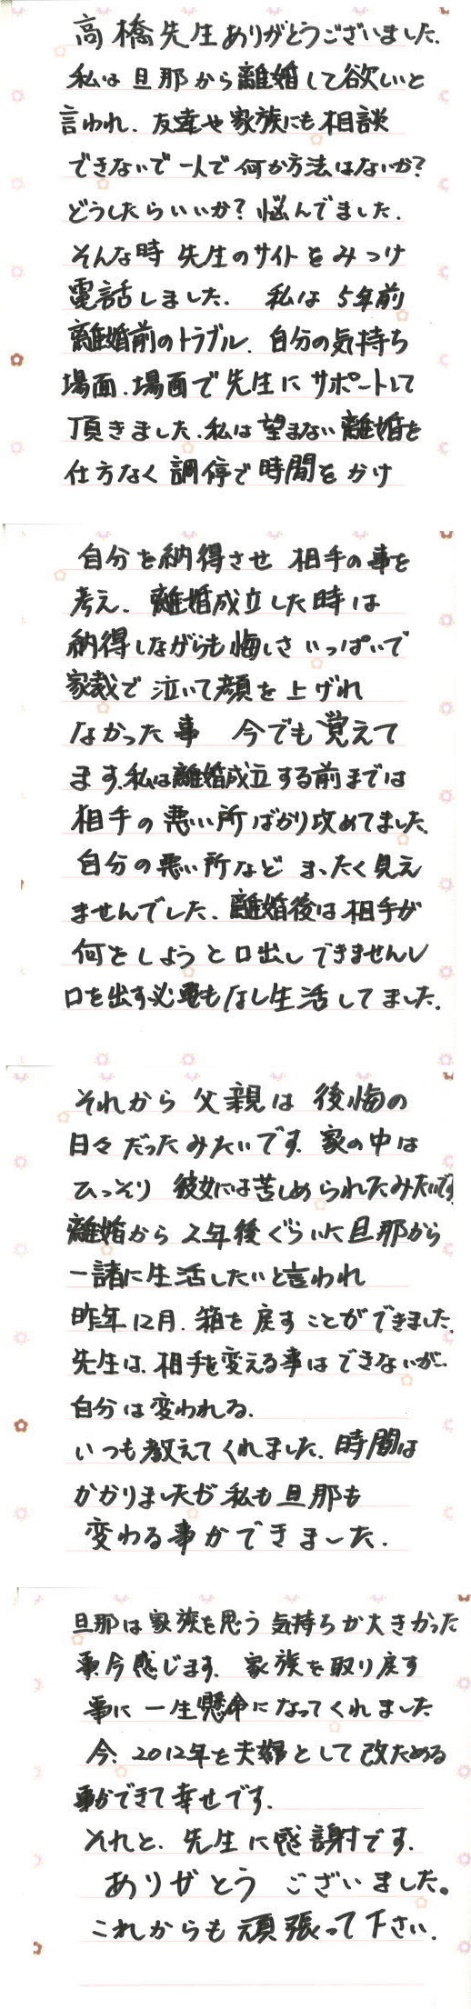 高橋先生ありがとうございました.
私は旦那から離婚して欲しいと
言われ、友達や家族にも相談
できないで一人で何か方法はないか?
どうしたらいいか?悩んでました.
そんな時 先生のサイトをみつけ
電話しました. 私は 5年前
離婚前のトラブル、自分の気持ち
場面、場面で先生にサポートして
頂きました.私は望まない離婚を
仕方なく調停で時間をかけ
自分を納得させ 相手の事を
考え、離婚成立した時は
納得しながらも悔しさいっぱいで
家裁で泣いて顔を上げれ
なかった事 今でも覚えて
ます.私は離婚成立する前までは
相手の悪い所ばかり攻めてました.
自分の悪い所など まったく見え
ませんでした. 離婚後は相手が
何をしようと口出しできませんし
口を出す必要もなし生活してました.
それから父親は後悔の
日々だったみたいです.家の中は
ひっそり 彼女には苦しめられたみたいです
離婚から2年後ぐらいに旦那から
一諸に生活したいと言われ
昨年12月、箱を戻すことができました.
先生は、相手を変える事はできないが、
自分は変われる.
いつも教えてくれました.時間は
かかりましたが私も旦那も
変わる事ができました.
旦那は家族を思う気持ちが大きかった
事今感じます. 家族を取り戻す
事に一生懸命になってくれました
今、2012年を夫婦として改ためる
事ができて幸せです.
それと、先生に感謝です.
ありがとう ございました。
これからも頑張って下さい.